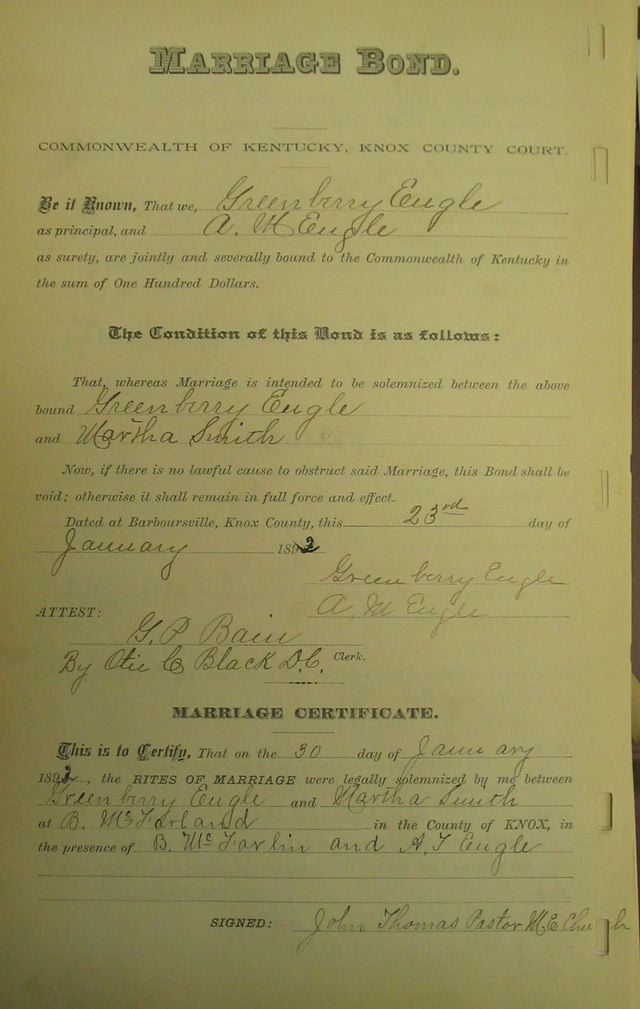 MARRIAGE BOND.
COMMONWEALTH OF KENTUCKY, KNOX COUNTY COURT.
Be it Known, That we, Greenberry Engle
as principal, and A. M Engle
as surety, are jointly and severally bound to the Commonwealth of Kentucky in
the sum of One Hundred Dollars.
The Condition of this Bond is as follows:
That, whereas Marriage is intended to be solemnized between the above
bound Greenberry Engle
and Martha Smith
Now, if there is no lawful cause to obstruct said Marriage, this Bond shall be
void; otherwise it shall remain in full force and effect.
Dated at Barboursville, Knox County, this 23rd day of
January 1892
Greenberry Engle
A. M Engle
ATTEST:
G. P Bain
By Otie C Black D.C. Clerk.
MARRIAGE CERTIFICATE.
This is to Certify, That on the 30 day of January
1892, the RITES OF MARRIAGE were legally solemnized by me between
Greenberry Engle and Martha Smith
at B. McFarland in the County of KNOX, in
the presence of B. McFarlin and A. T Engle
SIGNED: John Thomas Pastor M. E Church